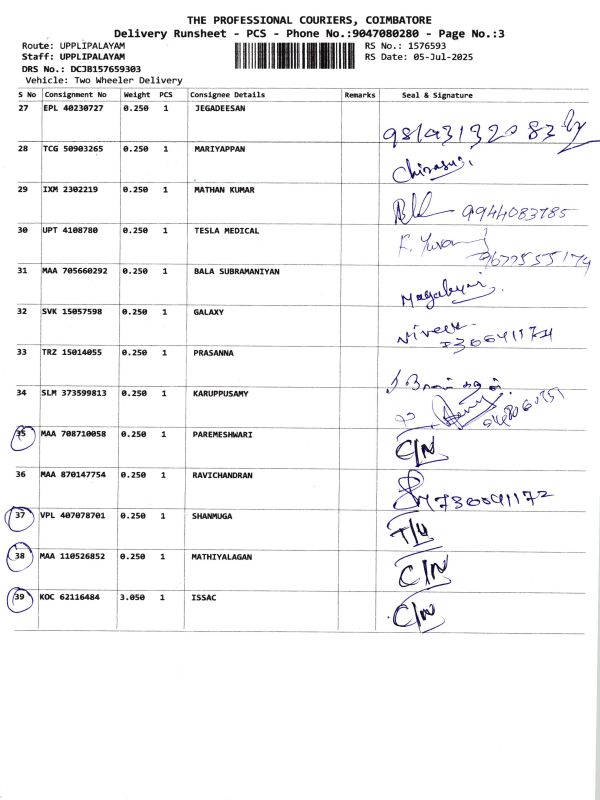 THE PROFESSIONAL COURIERS, COIMBATORE
Delivery Runsheet - PCS - Phone No.:9047080280 - Page No.:3
Route: UPPLIPALAYAM RS No.: 1576593
Staff: UPPLIPALAYAM RS Date: 05-Jul-2025
DRS No.: DCJB157659303
Vehicle: Two Wheeler Delivery
S No Consignment No Weight PCS Consignee Details Remarks Seal & Signature
27 EPL 40230727 0.250 1 JEGADEESAN
28 TCG 50903265 0.250 1 MARIYAPPAN
29 IXM 2302219 0.250 1 MATHAN KUMAR 9944083785
30 UPT 4108780 0.250 1 TESLA MEDICAL 9677555174
31 MAA 705660292 0.250 1 BALA SUBRAMANIYAN
32 SVK 15057598 0.250 1 GALAXY
33 TRZ 15014055 0.250 1 PRASANNA
34 SLM 373599813 0.250 1 KARUPPUSAMY
35 MAA 708710058 0.250 1 PAREMESHWARI C/N
36 MAA 870147754 0.250 1 RAVICHANDRAN
37 VPL 407078701 0.250 1 SHANMUGA
38 MAA 110526852 0.250 1 MATHIYALAGAN C/N
39 KOC 62116484 3.050 1 ISSAC C/N